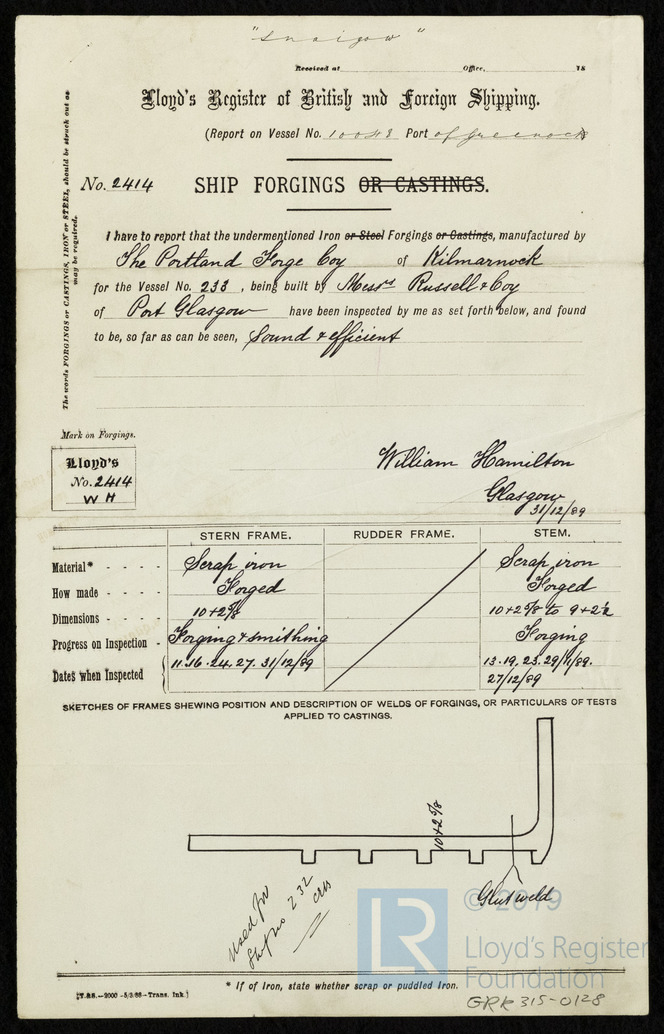 Received at Office, 18
Lloyd's Register of British and Foreign Shipping.
(Report on Vessel No. 10048 Port of Greenock
No. 2414 SHIP FORGINGS OR CASTINGS.
The words FORGINGS or CASTINGS, IRON or STEEL, should be struck out as may be required.
I have to report that the undermentioned Iron or Steel Forgings or Castings, manufactured by
The Portland Forge Coy of Kilmarnock
for the Vessel No. 233, being built by Messrs Russell & Coy
of Port Glasgow have been inspected by me as set forth below, and found
to be, so far as can be seen, Sound & efficient
Mark on Forgings.
Lloyd's
No. 2414
W H
William Hamilton
Glasgow
31/12/89
STERN FRAME. RUDDER FRAME. STEM.
Material* - - - - Scrap iron Scrap iron
How made - - - - Forged Forged
Dimensions - - - - 10 + 2 5/8 10 + 2 5/8 to 9 + 2 1/2
Progress on Inspection - Forging & smithing Forging
Dates when Inspected 11.16.24.27.31/12/89 13.19.23.29/11/89.
27/12/89
SKETCHES OF FRAMES SHEWING POSITION AND DESCRIPTION OF WELDS OF FORGINGS, OR PARTICULARS OF TESTS
APPLIED TO CASTINGS.
10 + 2 5/8
Glut weld
Used for
Ship No 232
© 2019
LR
Lloyd's Register
Foundation
* If of Iron, state whether scrap or puddled Iron.
[T.&S.—2000—5/3/88—Trans. Ink.]
GRK 315-0128